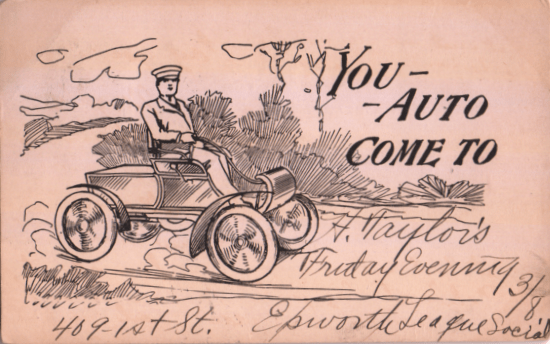 YOU -
- AUTO
COME TO
H. Taylor's
Friday Evening 3/8
409-1st St. Epworth League Social